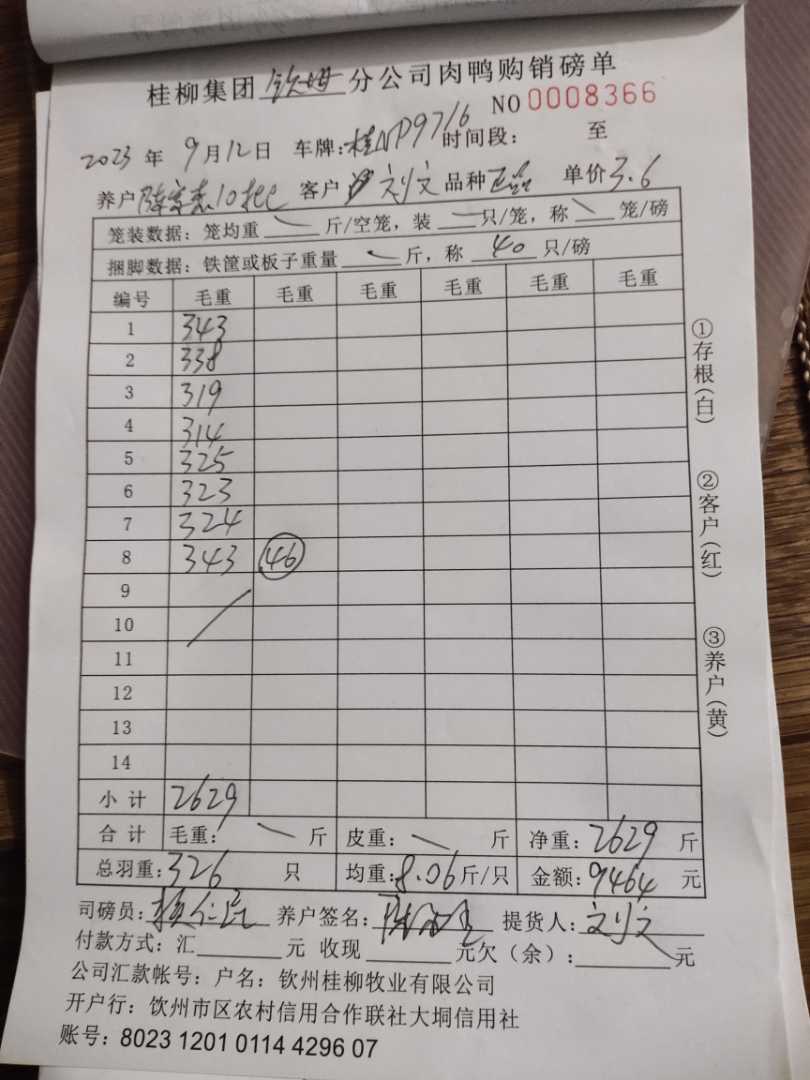 桂柳集团 钦州 分公司肉鸭购销磅单
NO 0008366
2023 年 9 月 12 日 车牌: 桂NP9716 时间段: 至
养户 10批 客户 刘文 品种 正品 单价 3.6
笼装数据: 笼均重 斤/空笼, 装 只/笼, 称 笼/磅
捆脚数据: 铁筐或板子重量 斤, 称 40 只/磅
编号 毛重 毛重 毛重 毛重 毛重 毛重
1 343
2 338
3 319
4 314
5 325
6 323
7 324
8 343 46
9
10
11
12
13
14
小计 2629
合计 毛重: 斤 皮重: 斤 净重: 2629 斤
总羽重: 326 只 均重: 8.06 斤/只 金额: 9464 元
司磅员: 养户签名: 提货人: 刘文
付款方式: 汇 元 收现 元欠(余): 元
公司汇款帐号: 户名: 钦州桂柳牧业有限公司
开户行: 饮州市区农村信用合作联社大垌信用社
账号: 8023 1201 0114 4296 07
①存根(白)
②客户(红)
③养户(黄)